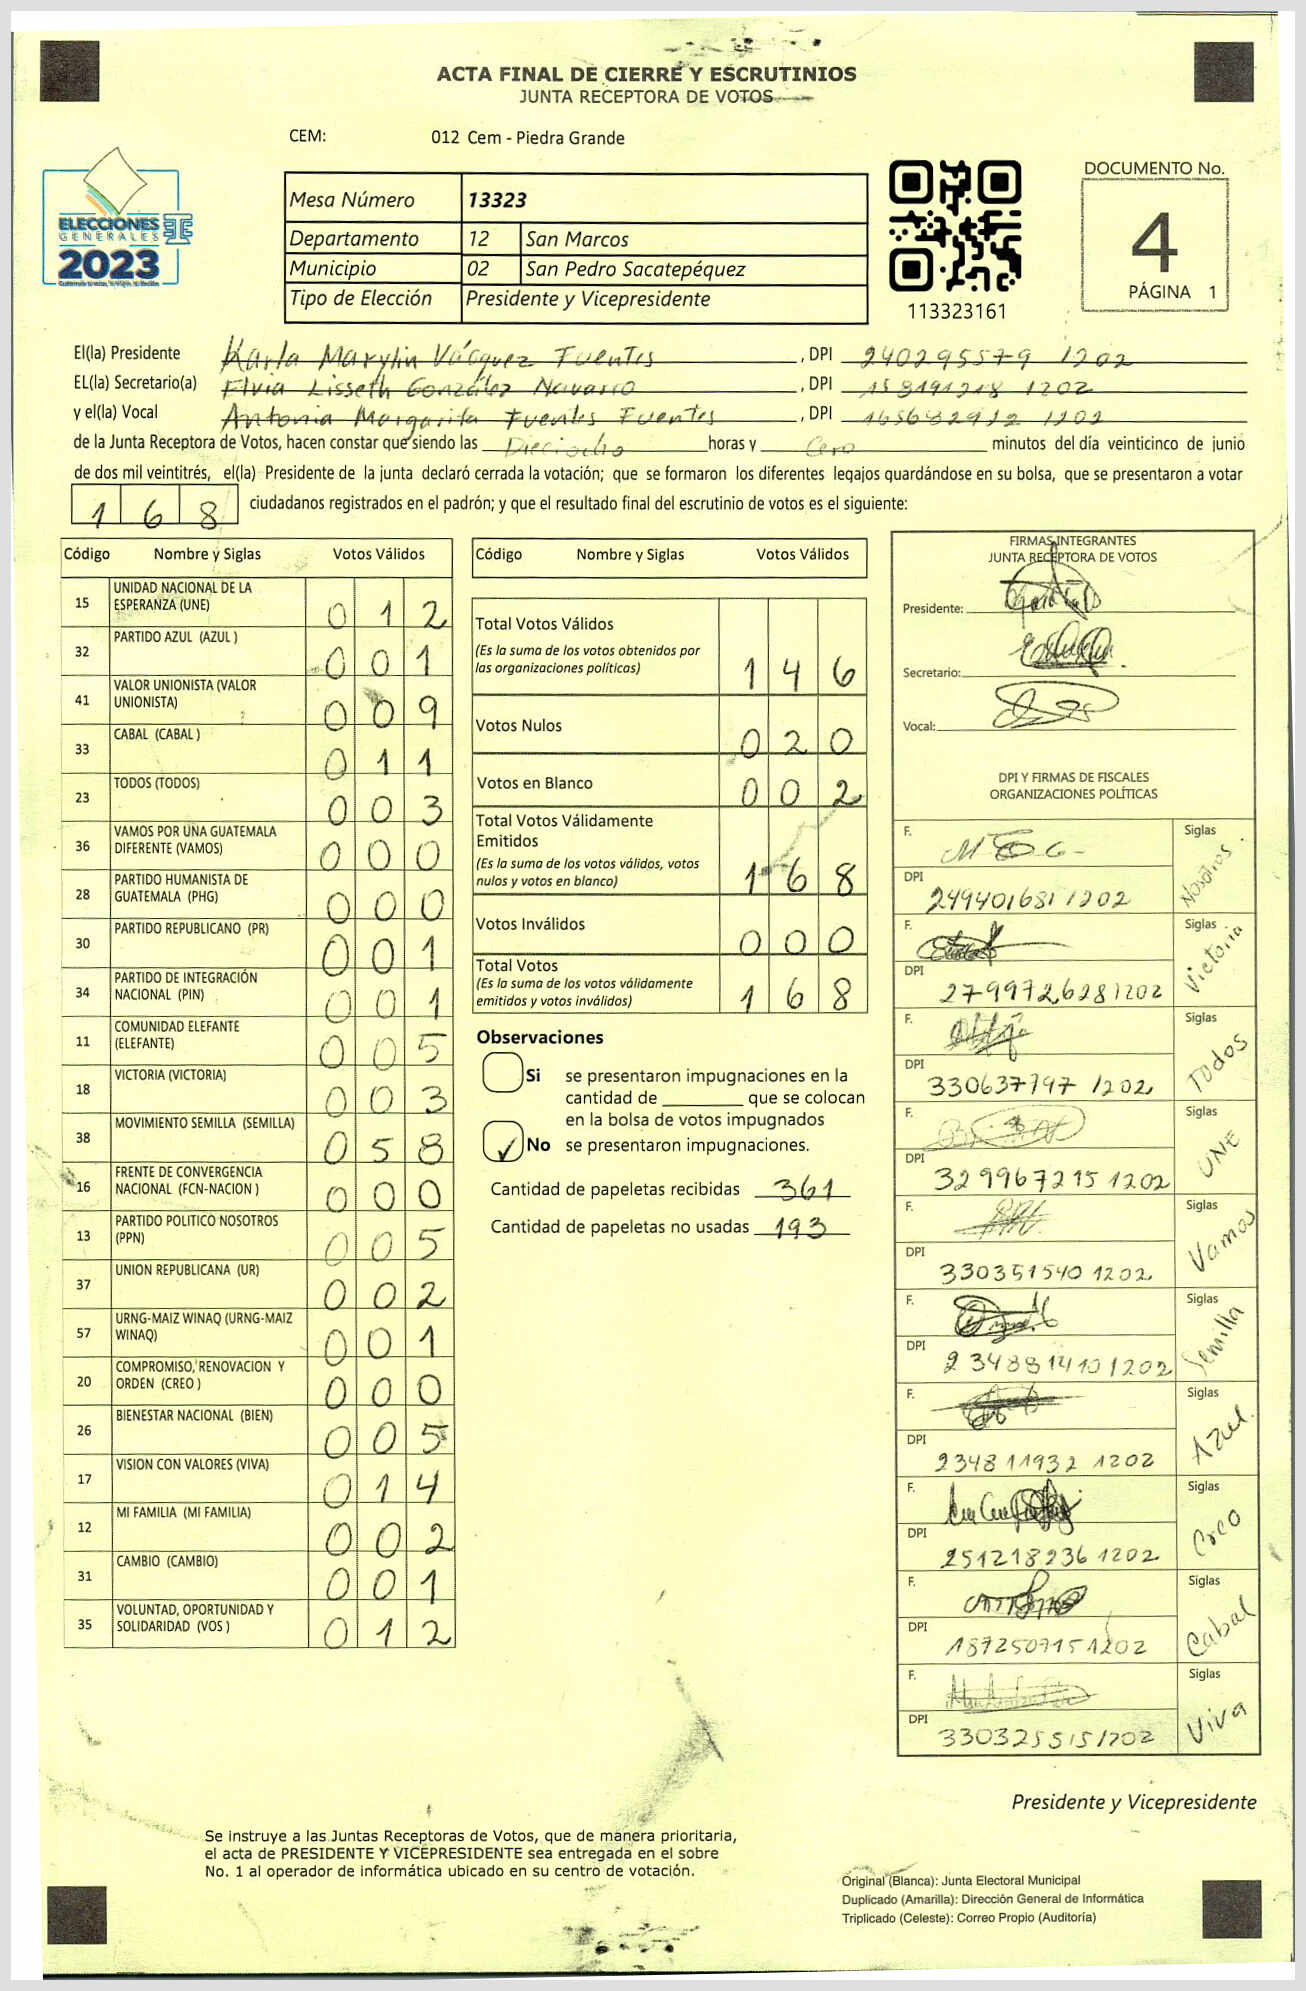 ACTA FINAL DE CIERRE Y ESCRUTINIOS
JUNTA RECEPTORA DE VOTOS
CEM: 012 Cem - Piedra Grande
ELECCIONES
GENERALES
2023
Mesa Número 13323
Departamento 12 San Marcos
Municipio 02 San Pedro Sacatepéquez
Tipo de Elección Presidente y Vicepresidente
113323161
DOCUMENTO No.
4
PÁGINA 1
El(la) Presidente Karla Marylin Vásquez Fuentes, DPI 240295579 1202
EL(la) Secretario(a) Elvia Lisseth González Navarro, DPI 158191218 1202
y el(la) Vocal Antonia Margarita Fuentes Fuentes, DPI 165682912 1202
de la Junta Receptora de Votos, hacen constar que siendo las Dieciocho horas y Cero minutos del día veinticinco de junio
de dos mil veintitrés, el(la) Presidente de la junta declaró cerrada la votación; que se formaron los diferentes legajos guardándose en su bolsa, que se presentaron a votar
168 ciudadanos registrados en el padrón; y que el resultado final del escrutinio de votos es el siguiente:
Código Nombre y Siglas Votos Válidos
15 UNIDAD NACIONAL DE LA ESPERANZA (UNE) 012
32 PARTIDO AZUL (AZUL ) 001
41 VALOR UNIONISTA (VALOR UNIONISTA) 009
33 CABAL (CABAL ) 011
23 TODOS (TODOS) 003
36 VAMOS POR UNA GUATEMALA DIFERENTE (VAMOS) 000
28 PARTIDO HUMANISTA DE GUATEMALA (PHG) 000
30 PARTIDO REPUBLICANO (PR) 001
34 PARTIDO DE INTEGRACIÓN NACIONAL (PIN) 001
11 COMUNIDAD ELEFANTE (ELEFANTE) 005
18 VICTORIA (VICTORIA) 003
38 MOVIMIENTO SEMILLA (SEMILLA) 058
16 FRENTE DE CONVERGENCIA NACIONAL (FCN-NACION ) 000
13 PARTIDO POLITICO NOSOTROS (PPN) 005
37 UNION REPUBLICANA (UR) 002
57 URNG-MAIZ WINAQ (URNG-MAIZ WINAQ) 001
20 COMPROMISO, RENOVACION Y ORDEN (CREO ) 000
26 BIENESTAR NACIONAL (BIEN) 005
17 VISION CON VALORES (VIVA) 014
12 MI FAMILIA (MI FAMILIA) 002
31 CAMBIO (CAMBIO) 001
35 VOLUNTAD, OPORTUNIDAD Y SOLIDARIDAD (VOS ) 012
Código Nombre y Siglas Votos Válidos
Total Votos Válidos
(Es la suma de los votos obtenidos por
las organizaciones políticas) 146
Votos Nulos 020
Votos en Blanco 002
Total Votos Válidamente
Emitidos
(Es la suma de los votos válidos, votos
nulos y votos en blanco) 168
Votos Inválidos 000
Total Votos
(Es la suma de los votos válidamente
emitidos y votos inválidos) 168
Observaciones
Si se presentaron impugnaciones en la
cantidad de ________ que se colocan
en la bolsa de votos impugnados
No se presentaron impugnaciones.
Cantidad de papeletas recibidas 361
Cantidad de papeletas no usadas 193
FIRMAS INTEGRANTES
JUNTA RECEPTORA DE VOTOS
Presidente:
Secretario:
Vocal:
DPI Y FIRMAS DE FISCALES
ORGANIZACIONES POLÍTICAS
F. Siglas Nosotros
DPI 249401681 1202
F. Siglas Victoria
DPI 279972628 1202
F. Siglas Todos
DPI 330637797 1202
F. Siglas UNE
DPI 329967215 1202
F. Siglas Vamos
DPI 330351540 1202
F. Siglas Semilla
DPI 234881410 1202
F. Siglas Azul
DPI 234811932 1202
F. Siglas Creo
DPI 251218236 1202
F. Siglas Cabal
DPI 187250715 1202
F. Siglas Viva
DPI 330325515 1202
Presidente y Vicepresidente
Se instruye a las Juntas Receptoras de Votos, que de manera prioritaria,
el acta de PRESIDENTE Y VICEPRESIDENTE sea entregada en el sobre
No. 1 al operador de informática ubicado en su centro de votación.
Original (Blanca): Junta Electoral Municipal
Duplicado (Amarilla): Dirección General de Informática
Triplicado (Celeste): Correo Propio (Auditoría)